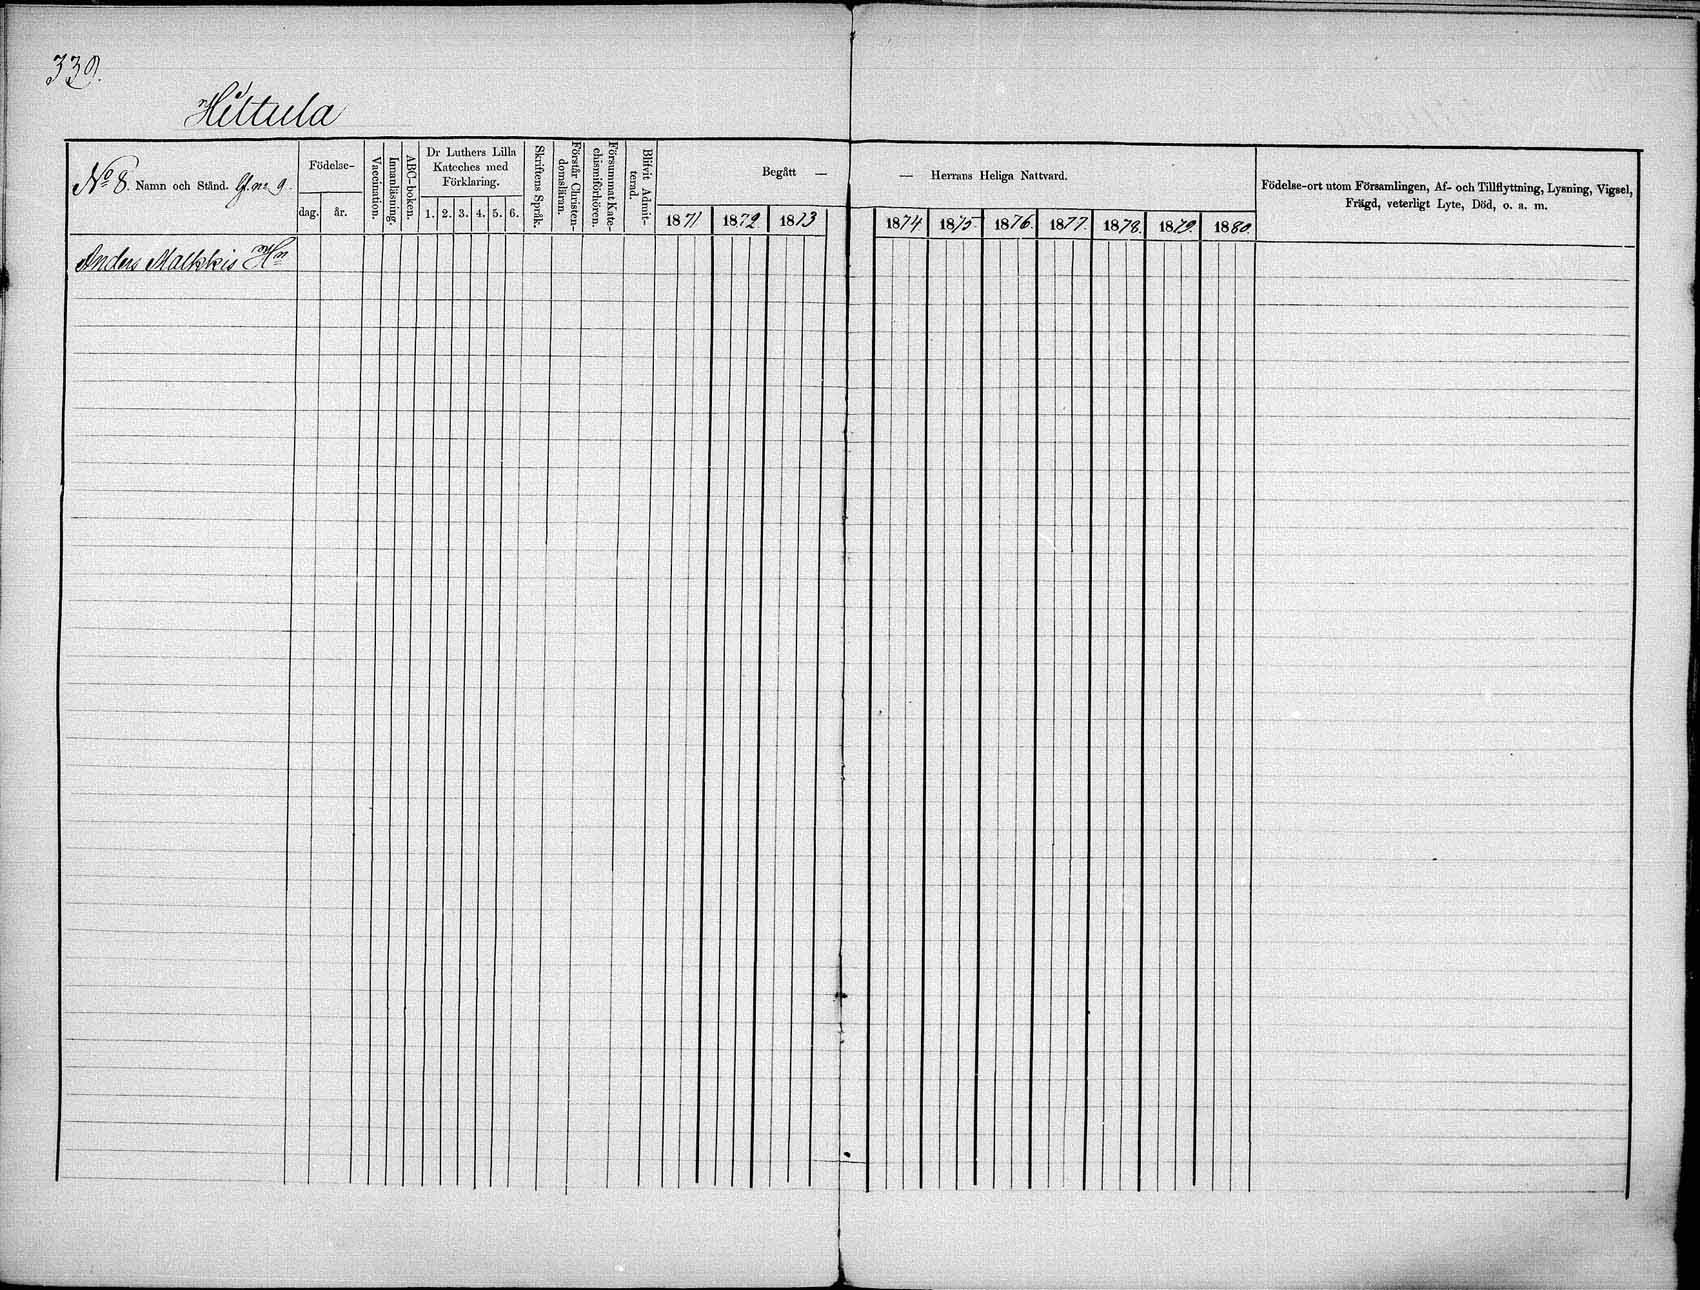 339.
Hiltula
No 8. Namn och Stånd. Gl. no 9.
Födelse-
dag. år.
Vaccination.
Innanläsning.
ABC-boken.
Dr Luthers Lilla
Kateches med
Förklaring.
1. 2. 3. 4. 5. 6.
Skriftens Språk.
Förstår Christen-
domsläran.
Försummat Kate-
chismiförhören.
Blifvit Admit-
terad.
Begått —
1871 1872. 1873
— Herrans Heliga Nattvard.
1874 1875. 1876. 1877. 1878. 1879. 1880.
Födelse-ort utom Församlingen, Af- och Tillflyttning, Lysning, Vigsel,
Frägd, veterligt Lyte, Död, o. a. m.
Anders Malkkis Hn